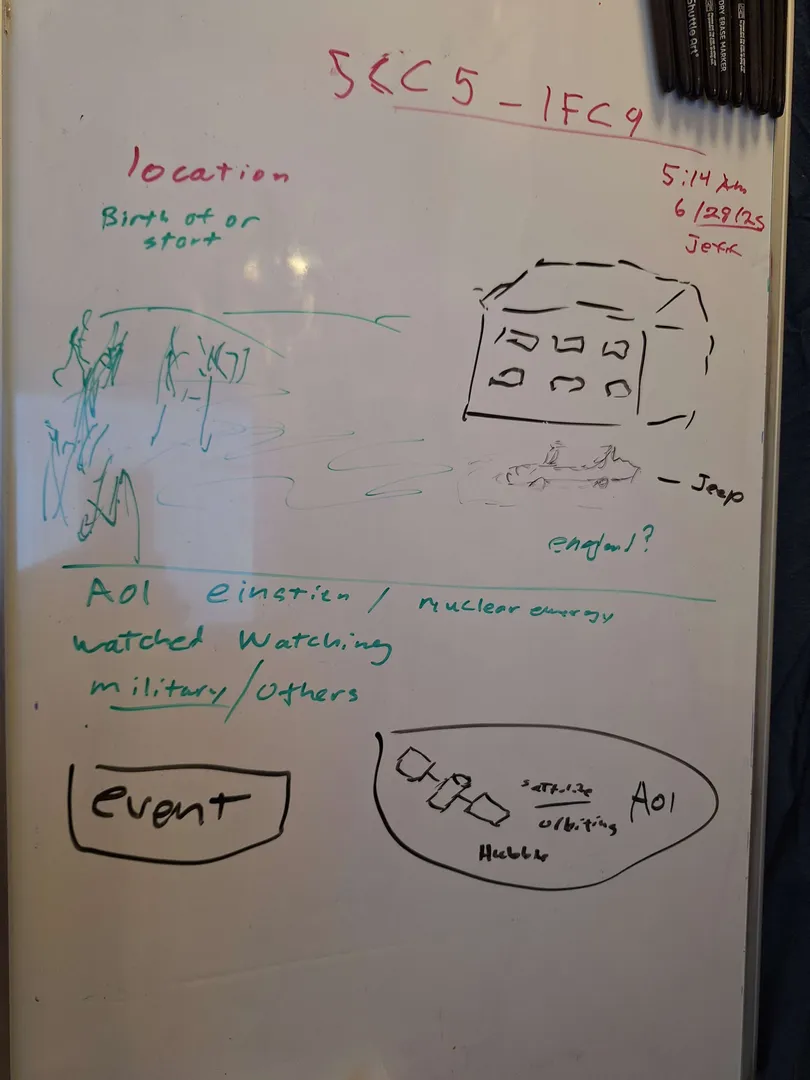 Shuttle Art
DRY ERASE MARKER
5KC5 - 1FC9
location
5:14 Am
6/29/25
Jeff
Birth of or
start
- Jeep
england?
AOl einstien / nuclear energy
watched Watching
military/others
event
sattelite
orbiting
AOl
Hubble